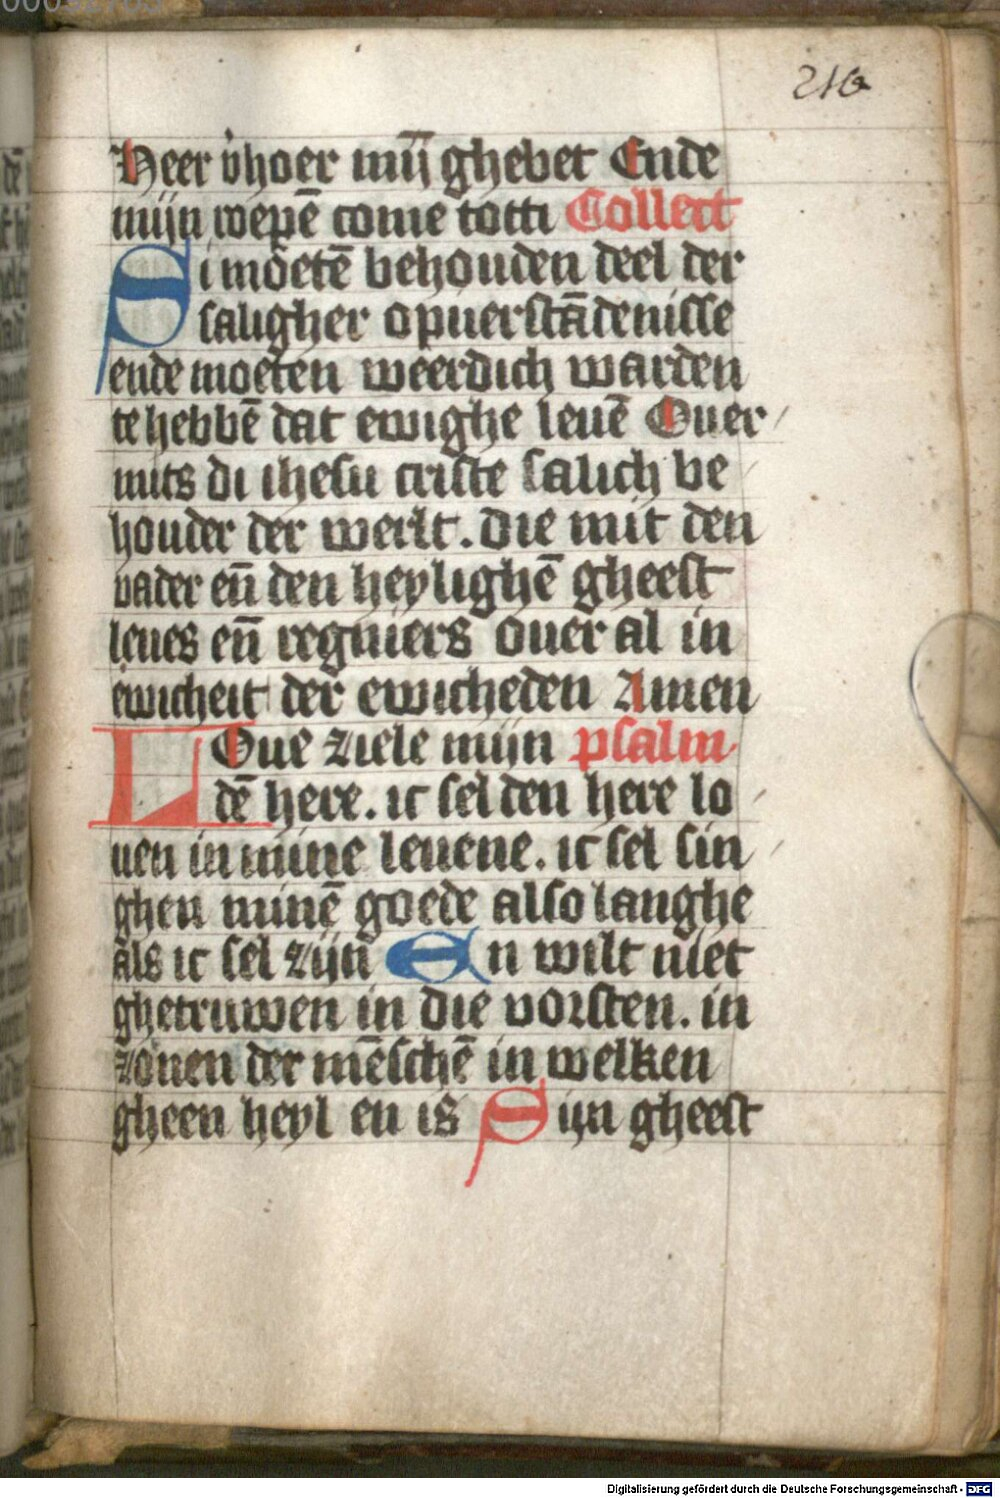 216
Heer v̓hoer mij̄ ghebet Ende
mijn wepē come totti Collect
Si moetē behouden deel der
saligher opuerstādenisse
ende moeten weerdich warden
te hebbē dat ewighe leuē Ouer/
mits di ihesu criste salich be/
houder der werlt. die mit den
vader eñ den heylighē gheest
leues eñ regniers ouer al in
ewicheit der ewicheden Amen
LOue ziele mijn psalm.
dē here. ic sel den here lo/
uen in mine leuene. ic sel sin/
ghen minē goede also langhe
als ic sel zijn En wilt niet
ghetruwen in die vorsten. in
zonen der mēschē in welken
gheen heyl en is Sijn gheest
Digitalisierung gefördert durch die Deutsche Forschungsgemeinschaft - DFG